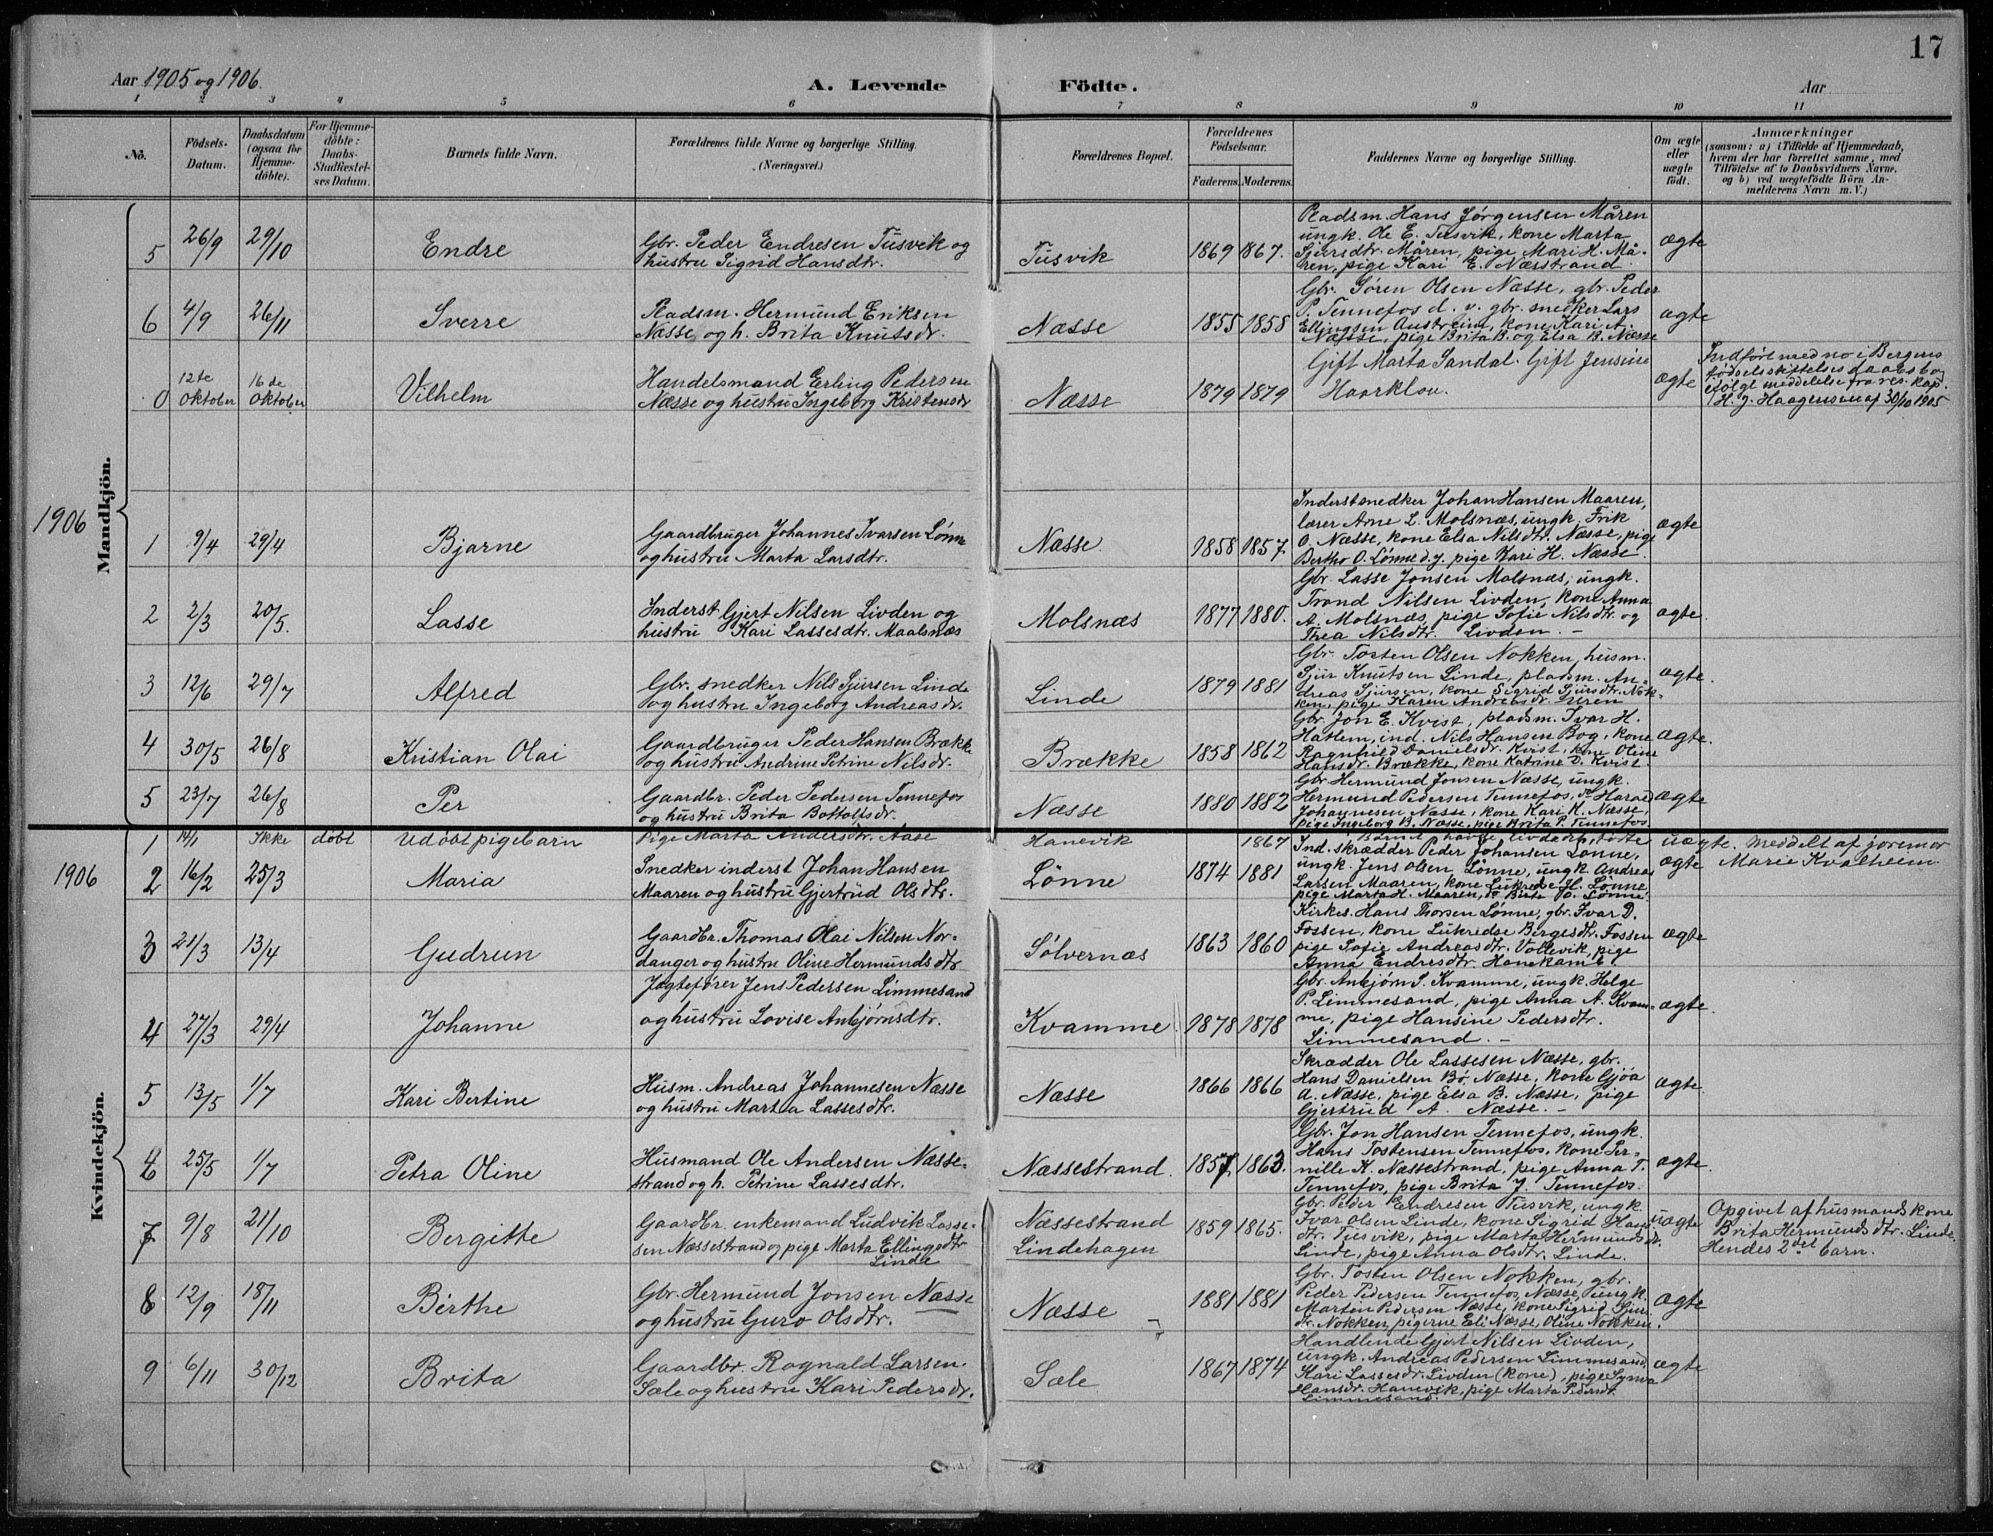 17
Aar 1905 og 1906.
A. Levende Födte.
Aar
1 2 3 4 5 6 7 8 9 10 11
No.
Födsels-
Datum.
Daabsdatum
(ogsaa for
Hjemme-
döbte).
For Hjemme-
döbte:
Daabs-
Stadfæstel-
ses Datum.
Barnets fulde Navn.
Forældrenes fulde Navne og borgerlige Stilling.
(Næringsvei.)
Forældrenes Bopæl.
Forældrenes
Födselsaar.
Faderens. Moderens.
Faddernes Navne og borgerlige Stilling.
Om ægte
eller
uægte
födt.
Anmærkninger
(saasom: a) i Tilfælde af Hjemmedaab,
hvem der har forrettet samme, med
Tilföielse af to Daabsvidners Navne.
og b) ved uægtefödte Börn An-
melderens Navn m. V.)
Mandkjön.
5 26/9 29/10 Endre
Gbr. Peder Endresen Tusvik og
hustru Sigrid Hansdtr.
Tusvik 1869 1867.
Pladsm. Hans Jørgensen Måren
ungk. Ole E. Tusvik, kone Marta
Sjursdtr. Måren, pige Mari H. Må-
ren, pige Kari E. Næsstrand.
ægte
6 4/9 26/11 Sverre
Pladsm. Hermund Eriksen
Næsse og h. Brita Knutsdr.
Næsse 1855 1858
Gbr. Søren Olsen Næsse, gbr. Peder
P. Tennefos d. y. gbr. snedker Lars
Ellingsen Austreim, kone Kari A.
Næsse, pige Brita B. og Elsa B. Næsse
ægte
0 12te Oktober 16de Oktober Vilhelm
Handelsmand Erling Pedersen
Næsse og hustru Ingeborg Kristensdr
Næsse 1879 1879
Gift Marta Sandal. Gift Jensine
Haarklou.
ægte
Indført med no i Bergens
fødselsstiftelses daabsbog
ifølge meddelelse fra res. kap.
H. J. Haagensen af 30/10 1905
1906
1 9/4 29/4 Bjarne
Gaardbruger Johannes Ivarsen Lønne
og hustru Marta Larsdtr.
Næsse. 1858 1857.
Inderst snedker Johan Hansen Maaren,
lærer Arne L. Molsnæs, ungk. Erik
O. Næsse, kone Elsa Nilsdtr. Næsse, pige
Bertha O. Lønne d. y. pige Kari H. Næsse.
ægte
2 2/3 20/5. Lasse
Inderst Gjert Nilsen Livden og
hustru Kari Lassesdtr. Maalsnæs
Molsnæs 1877 1880.
Gbr. Lasse Jonsen Molsnæs, ungk.
Trond Nilsen Livden, kone Anna
A. Molsnæs, pige Sofie Nilsdtr. og
Thea Nilsdtr. Livden. –
ægte.
3 12/6 29/7 Alfred
Gbr. snedker Nils Sjursen Linde
og hustru Ingeborg Andreasdr.
Linde 1879 1881
Gbr. Tosten Olsen Nokken, husm.
Sjur Knutsen Linde, pladsm. An-
dreas Sjursen, kone Sigrid Sjursdtr. Nok-
ken, pige Karen Andreasdr. Duren
ægte.
4 30/5 26/8 Kristian Olai
Gaardbruger Peder Hansen Brække
og hustru Andrine Petrine Nilsdr.
Brække 1858 1862
Gbr. Jon E. Kvist, pladsm. Ivar H.
Hatlem, ind. Nils Hansen Bog, kone
Ragnhild Danielsdr. Kvist, kone Oline
Hansdr. Brække, kone Katrine D. Kvist.
ægte.
5 23/7 26/8 Per
Gaardbr. Peder Pedersen Tennefos
og hustru Brita Bottolfsdr.
Næsse 1880 1882
Gbr. Hermund Jonsen Næsse, ungk.
Hermund Pedersen Tennefos, do Harald
Johannesen Næsse, kone Kari K. Næsse,
pige Ingeborg B. Næsse, pige Brita P. Tennefos.
ægte
1906
Kvindekjön.
1 14/1 Ikke døbt Udøbt pigebarn
Pige Marta Andersdtr. Aase
Hanevik 1867
Barnet havde livde efter fødte
uægte. Meddelt af jormor
Marie Kvalheim.
2 16/2 25/3 Maria
Snedker inderst Johan Hansen
Maaren og hustru Gjertrud Olsdtr.
Lønne 1874 1881
Ind. skrædder Peder Johansen Lønne,
ungk. Jens Olsen Lønne, ungk. Andreas
Larsen Maaren, kone Lukrede H. Lønne,
pige Marta H. Maaren, do Brite O. Lønne.
ægte
3 21/3 13/4 Gudrun
Gaardbr. Thomas Olai Nilsen Nor-
danger og hustru Oline Hermundsdtr
Sølvernæs 1863 1860
Kirkes. Hans Thorsen Lønne, gbr. Ivar D.
Fossen, kone Lukredse Bergesdtr. Fossen
pige Sofie Andreasdtr. Vollevik, pige
Anna Endresdtr. Hanekamb.
ægte
4 27/3 29/4 Johanne
Jægtefører Jens Pedersen Limmesand
og hustru Lovise Anbjørnsdtr.
Kvamme 1878 1878
Gbr. Anbjørn S. Kvamme, ungk. Helge
P. Limmesand, pige Anna A. Kvam-
me, pige Hansine Pedersdtr.
Limmesand. –
ægte.
5 13/5 1/7 Kari Bertine
Husm. Andreas Johannesen Næsse
og hustru Marta Lassesdtr.
Næsse 1866 1866
Skrædder Ole Lassesen Næsse, gbr.
Hans Danielsen Bø, Næsse, kone Gjøa
A. Næsse, pige Elsa B. Næsse, pige
Gjertrud A. Næsse. –
ægte.
6 25/5 1/7 Petra Oline
Husmand Ole Andersen Næsse-
strand og h. Petrine Lassesdtr.
Næssestrand. 1857 1863.
Gbr. Jon Hansen Tennefos, ungk.
Hans Tostensen Tennefos, kone Per-
nille K. Næssestrand, pige Anna T.
Tennefos, pige Brita J. Tennefos.
ægte.
7 9/8 21/10 Bergitte
Gaardbr. enkemand Ludvik Lasse-
sen Næssestrand og pige Marta Ellingsdtr
Linde
Næssestrand
Lindehagen 1859 1865.
Gbr. Peder Endresen Tusvik, ungk.
Ivar Olsen Linde, kone Sigrid Hans-
dtr. Tusvik, pige Marta Hermundsdr.
Linde, pige Anna Olsdtr. Linde.
uægte
Opgivet af husmandskone
Brita Hermundsdtr. Linde.
Hendes 2det barn.
8 12/9 18/11 Berthe
Gbr. Hermund Jonsen Næsse
og hustru Guro Olsdtr.
Næsse 1881 1881
Gbr. Tosten Olsen Nokken, gbr.
Peder Pedersen Tennefos, Næsse, ungk.
Marten Pedersen Næsse, kone Sigrid Sjurs-
dr. Nokken, pigerne Eli Næsse, Oline Nokken.
ægte
9 6/11 30/12 Brita
Gaardbr. Ragnald Larsen
Sæle og hustru Kari Pedersdr.
Sæle 1867 1874
Handlende Gjert Nilsen Livden,
ungk. Andreas Pedersen Limmesand,
Kari Lassesdr. Livden (kone), pige Synva
Hansdr. Hanevik, pige Marta Pedersdt
Limmesand.
ægte